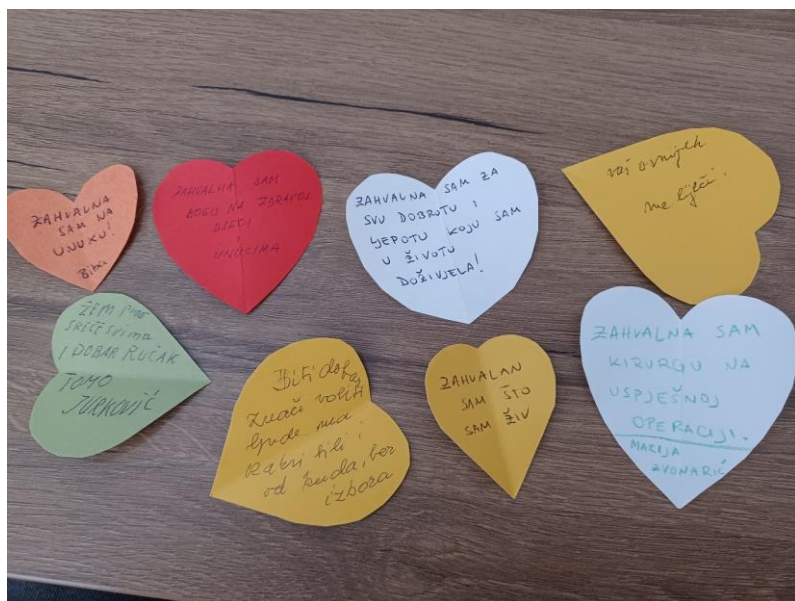 ZAHVALNA
SAM NA
UNUKU!
Biba
ZAHVALNA SAM
BOGU NA ZDRAVOJ
DJECI
I
UNUCIMA
ZAHVALNA SAM ZA
SVU DOBROTU I
LJEPOTU KOJU SAM
U ŽIVOTU
DOŽIVJELA!
vaš osmijeh
me liječi.
SREĆE svima
I DOBAR RUČAK
TOMO
JURKOVIĆ
Biti dobar
znači voliti
ljude, ma
kakvi bili i
od kuda, bez
izbora
ZAHVALAN
SAM ŠTO
SAM ŽIV
ZAHVALNA SAM
KIRURGU NA
USPJEŠNOJ
OPERACIJI.
MARIJA
ZVONARIĆ